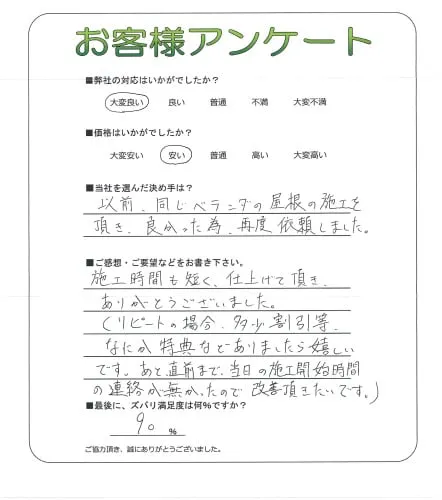 お客様アンケート
■弊社の対応はいかがでしたか?
大変良い 良い 普通 不満 大変不満
■価格はいかがでしたか?
大変安い 安い 普通 高い 大変高い
■当社を選んだ決め手は?
以前、同じベランダの屋根の施工を
頂き、良かった為、再度依頼しました。
■ご感想・ご要望などをお書き下さい。
施工時間も短く、仕上げて頂き、
ありがとうございました。
(リピートの場合、多少割引等、
なにか特典などありましたら嬉しい
です。あと、直前まで、当日の施工開始時間
の連絡が無かったので改善頂きたいです。)
■最後に、ズバリ満足度は何%ですか?
90 %
ご協力頂き、誠にありがとうございました。